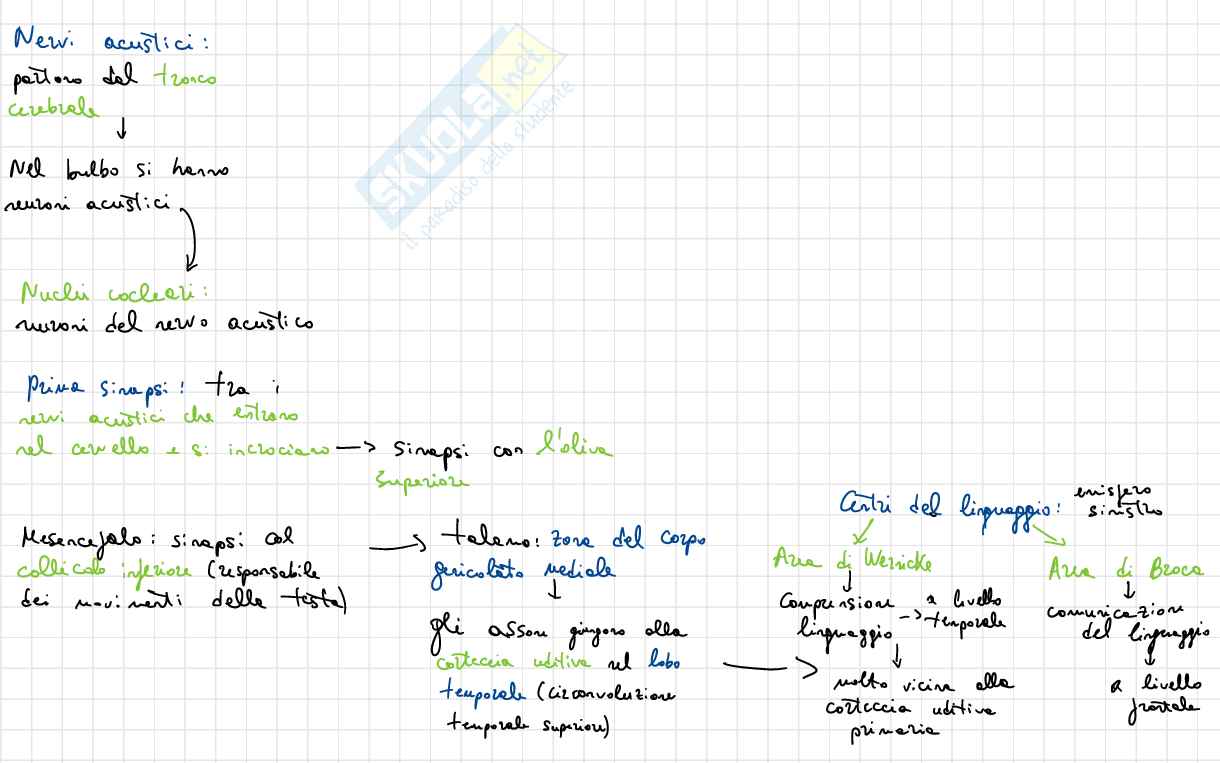 Nervi acustici:
partono dal tronco
cerebrale
Nel bulbo si hanno
neuroni acustici
Nuclei cocleari:
neuroni del nervo acustico
Prima sinapsi: tra i
nervi acustici che entrano
nel cervello e si incrociano → sinapsi con l'oliva
superiore
Mesencefalo: sinapsi col
collicolo inferiore (responsabile
dei movimenti della testa)
talamo: zona del corpo
genicolato mediale
gli assoni giungono alla
corteccia uditiva nel lobo
temporale (circonvoluzione
temporale superiore)
Centri del linguaggio: emisfero
sinistro
Area di Wernicke
Comprensione → a livello
linguaggio temporale
molto vicina alla
corteccia uditiva
primaria
Area di Broca
comunicazione
del linguaggio
a livello
frontale
SKUOLA.net
il paradiso dello studente